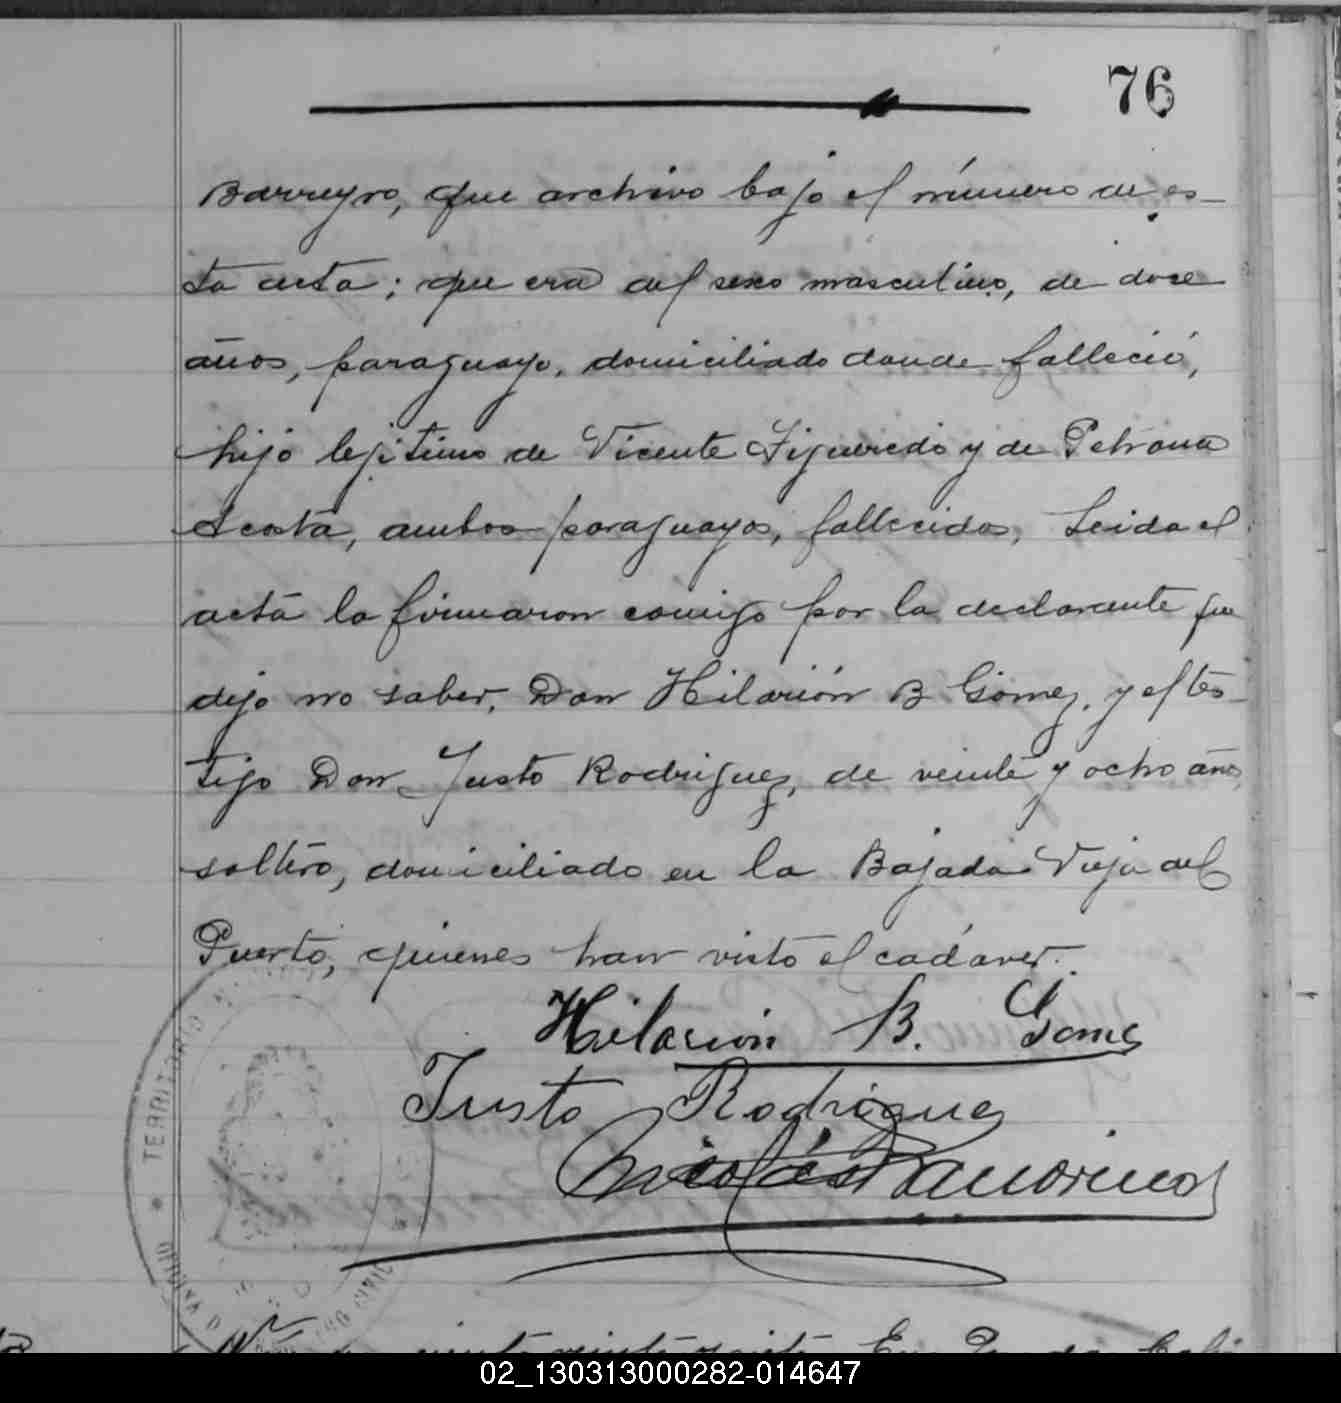 76
Barreyro, que archivo bajo el número de es-
ta acta; que era del sexo masculino, de doce
años, paraguayo, domiciliado donde falleció,
hijo lejitimo de Vicente Figueredo y de Petrona
Acosta, ambos paraguayos, fallecidos, Leida el
acta la firmaron conmigo por la declarante que
dijo no saber, Don Hilarión B Gómez, y el tes-
tigo Don Justo Rodriguez, de veinte y ocho años,
soltero, domiciliado en la Bajada Vieja del
Puerto, quienes han visto el cadáver.
Hilarión B. Gomez
Justo Rodriguez
Nicolás
TERRITORIO
CIVIL
02_130313000282-014647